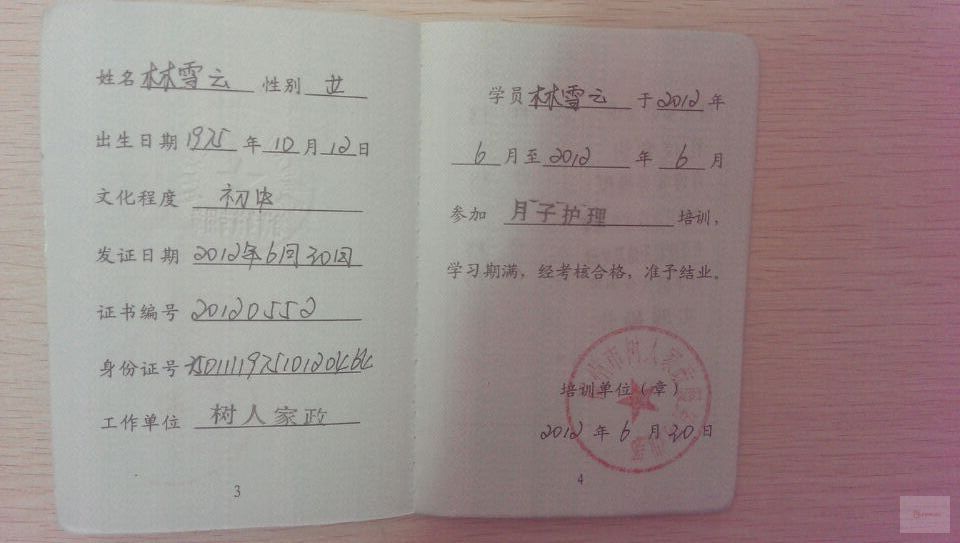 姓名 林雪云 性别 女
出生日期 1975 年 10 月 12 日
文化程度 初中
发证日期 2012年6月30日
证书编号 20120552
身份证号
工作单位 树人家政
3
学员 林雪云 于 2012 年
6 月至 2012 年 6 月
参加 月子护理 培训,
学习期满,经考核合格,准予结业。
培训单位(章)
2012 年 6 月 30 日
4